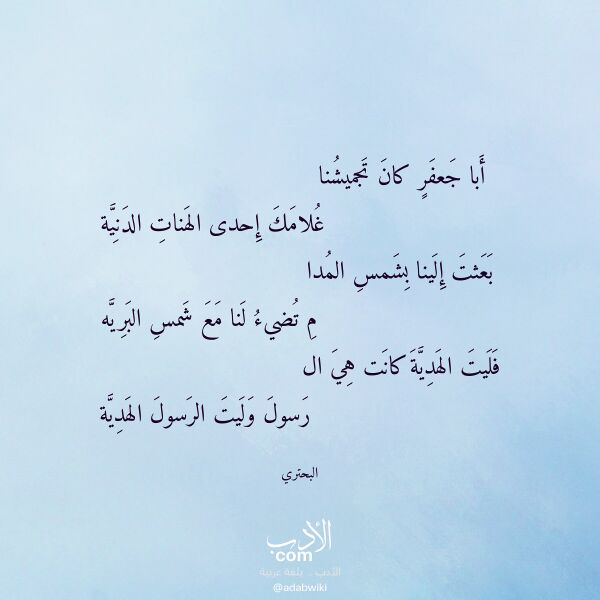 أَبا جَعفَرٍ كانَ تَجميشُنا
غُلامَكَ إِحدى الهَناتِ الدَنِيَّة
بَعَثتَ إِلَينا بِشَمسِ المُدا
مِ تُضيءُ لَنا مَعَ شَمسِ البَرِيَّه
فَلَيتَ الهَدِيَّةَ كانَت هِيَ ال
رَسولَ وَلَيتَ الرَسولَ الهَدِيَّة
البحتري
الأدب
com
الأدب .. بلغة عربية
@adabwiki